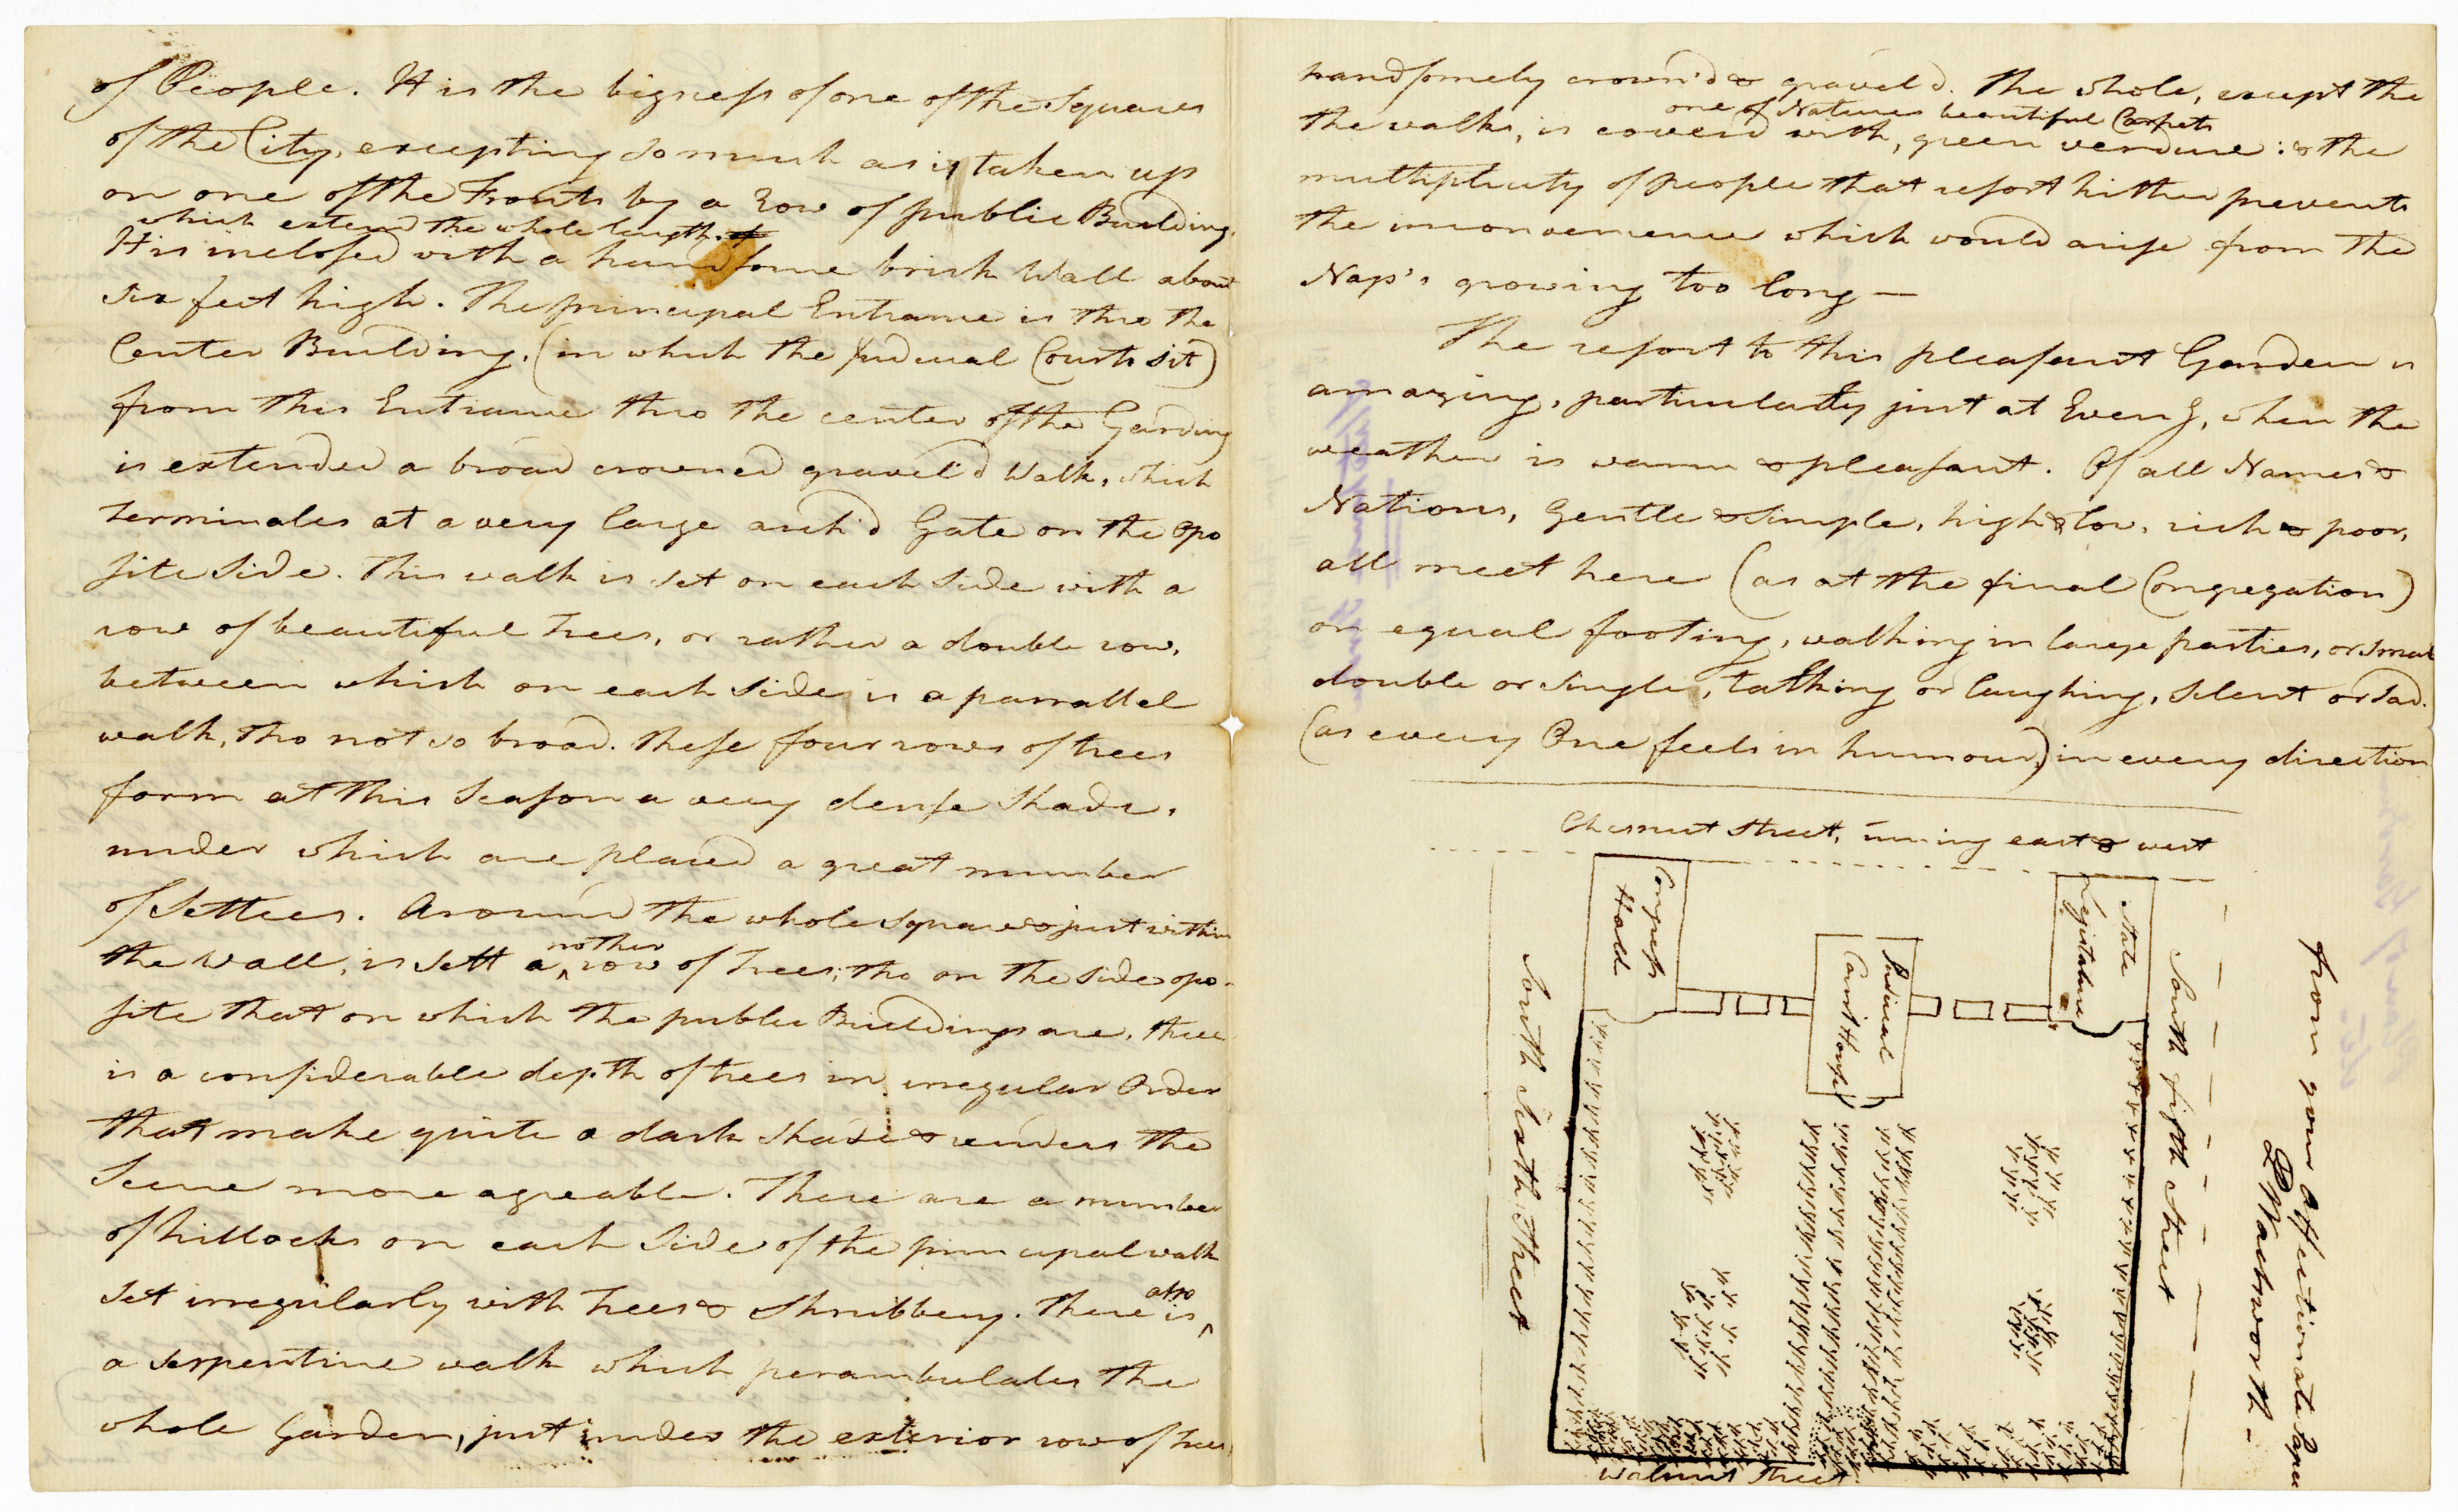 of People. It is the bigness of one of the Squares
of the City, excepting so much as is taken up
on one of the Fronts by a Row of public Buildings,
which extend the whole length.
It is inclosed with a handsome brick Wall about
six feet high. The principal Entrance is thro the
Center Building, (in which the Judicial Courts sit)
from this Entrance thro the center of the Garding
is extended a broad crowned gravel'd Walk, which
terminates at a very large arch'd Gate on the opo
site Side. This walk is set on each Side with a
row of beautiful Trees, or rather a double row,
between which on each Side is a parrallel
walk, tho not so broad. These four rows of trees
form at this Season a very dense Shade,
under which are placed a great number
of Settees. Around the whole square & just within
the Wall, is sett a nother row of Trees; tho on the side opo-
site that on which the public Buildings are, there
is a considerable depth of trees in irregular Order
that make quite a dark Shade & renders the
Scene more agreable. There are a number
of hillocks on each Side of the principal walk
set irregularly with Trees & Shrubbery. There is also
a serpentine walk which perambulates the
whole Garden, just under the exterior row of trees,
handsomely crown'd & gravel'd. The whole, except the
the walks, is coverd with, one of Natures beautiful Carpets green verdure: & the
multiplicity of people that resort hither prevents
the inconvenience which would arise from the
Nap's growing too long —
The resort to this pleasant Garden is
amazing, particularly just at Eveng, when the
weather is warm & pleasant. Of all Names &
Nations, Gentle & Simple, high & low, rich & poor,
all meet here (as at the final Congregation)
on equal footing, walking in large parties, or small
double or single, talking or laughing, silent or sad.
(as every One feels in humour,) in every direction
Chesnut Street, runing east & west
Congress
Hall
Judicial
Court House
State
Legislature
South Sixth Street
South fifth Street
Walnut Street
from your Affectionate Papa
D Wadsworth -